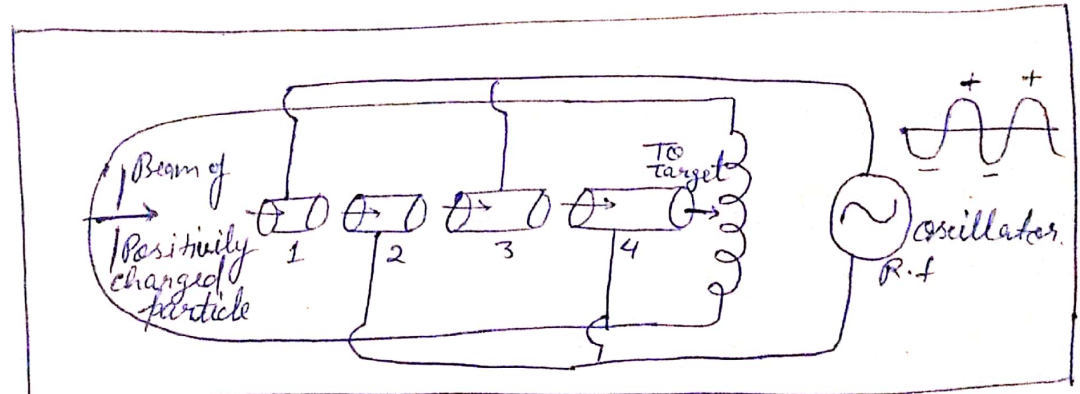 + +
Beam of
Positivily
charged
particle
1 2 3 4
To
Target
- -
oscillator.
R.f